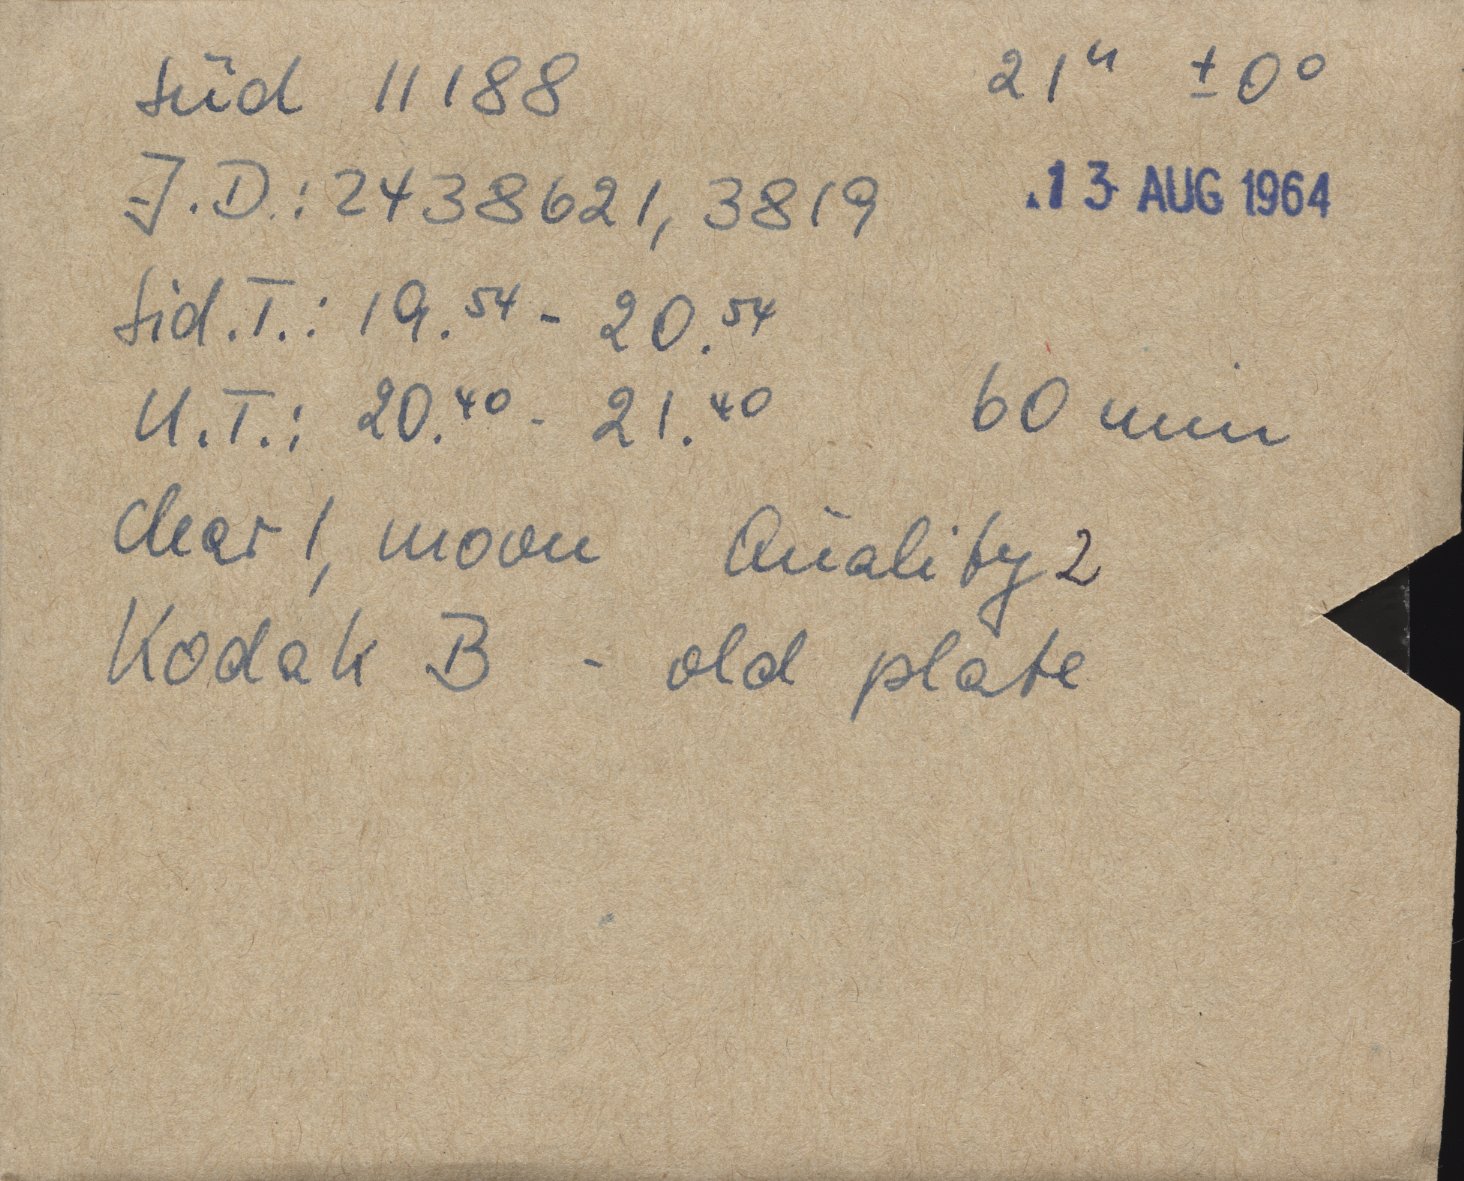 Süd 11188 21ʰ ±0°
J.D.: 2438621,3819 .13 AUG 1964
Sid.T.: 19.⁵⁴ - 20.⁵⁴
U.T.: 20.⁴⁰ - 21.⁴⁰ 60 min
clear 1, moon Quality 2
Kodak B - old plate